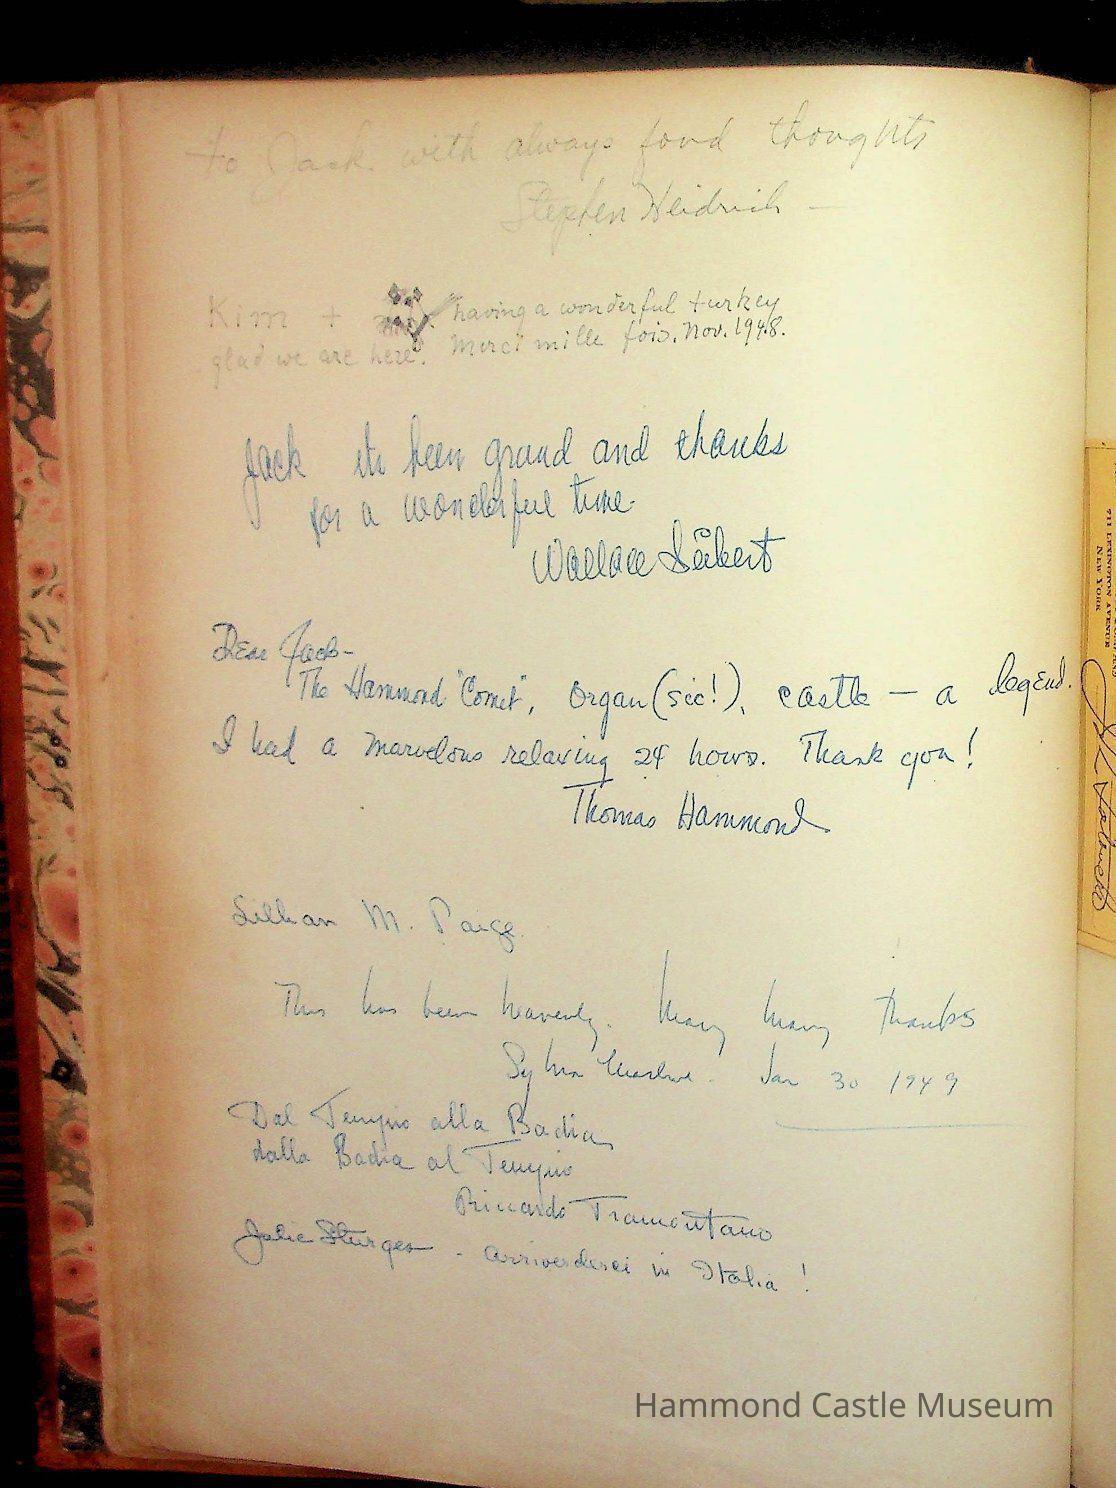 to Jack. with always fond thoughts
Stephen Heidrich —
Kim + having a wonderful turkey
glad we are here. Merci mille fois. Nov. 1948.
Jack its been grand and thanks
for a wonderful time.
Wallace Seibert
Dear Jack-
The Hammond "Comet", organ (sic!), castle — a legend.
I had a marvelous relaxing 24 hours. Thank you!
Thomas Hammond
Lillian M. Paige.
This has been heavenly. Many many thanks
Sylvia Marlowe. Jan 30 1949
Dal Tempio alla Badia
dalla Badia al Tempio
Riccardo Tramontano
Julie Sturges - arrivederci in Italia!
711 LEXINGTON AVENUE
NEW YORK
Hammond Castle Museum